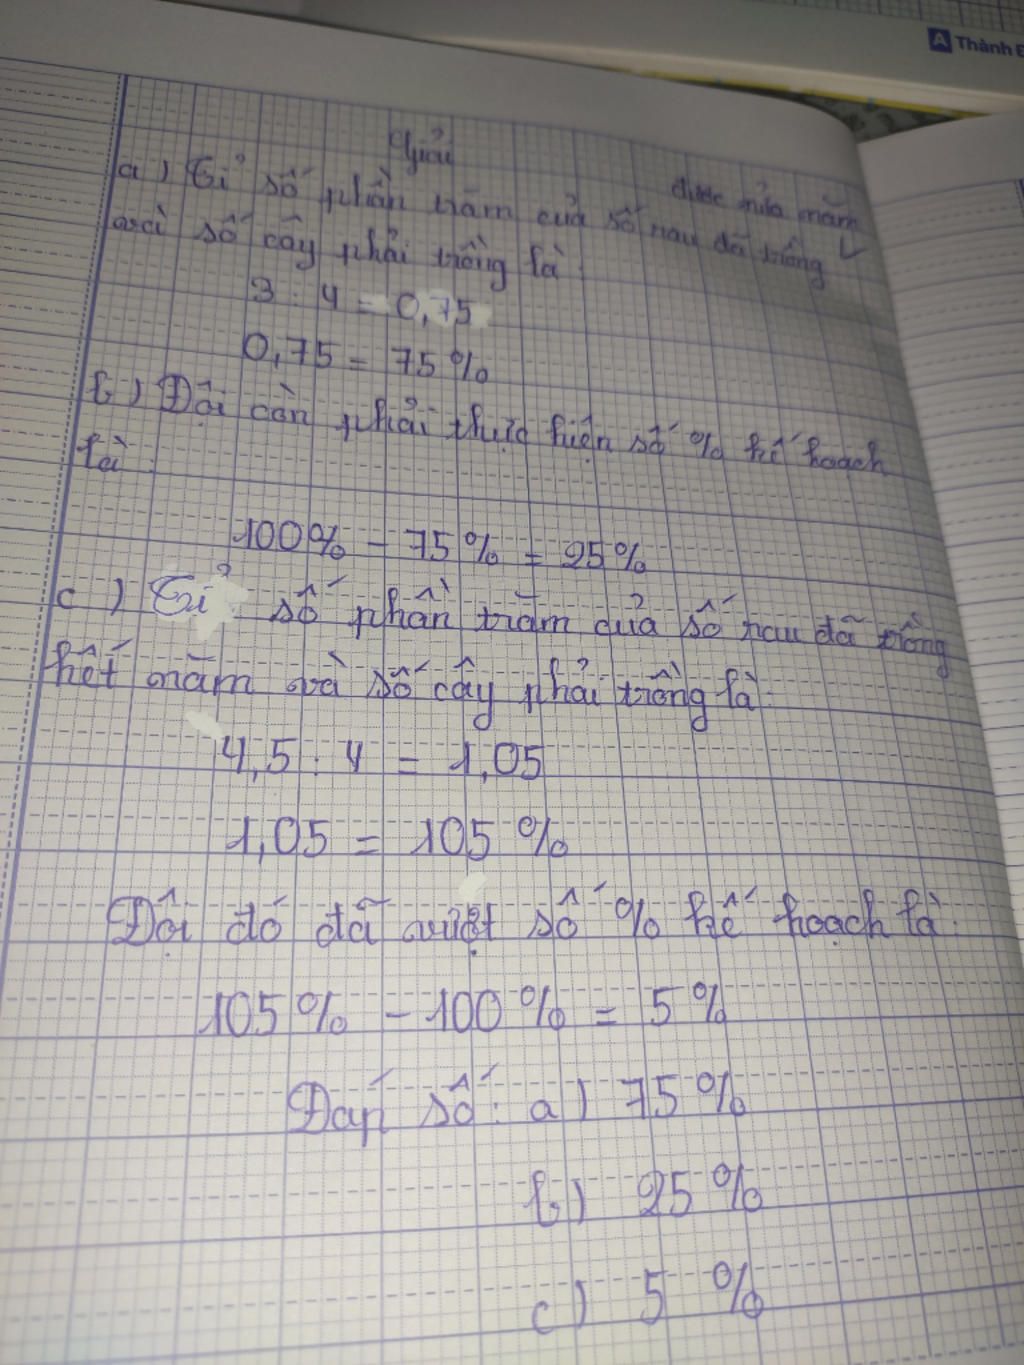 Thành Đ
Giải
a) Tỉ số phần trăm của số rau đã trồng được nửa năm
với số cây phải trồng là:
3 : 4 = 0,75
0,75 = 75%
b) Đội còn phải thực hiện số % kế hoạch
là:
100% - 75% = 25%
c) Tỉ số phần trăm của số rau đã trồng
hết năm và số cây phải trồng là:
4,5 : 4 = 1,05
1,05 = 105%
Đội đó đã vượt số % kế hoạch là:
105% - 100% = 5%
Đáp số: a) 75%
b) 25%
c) 5%